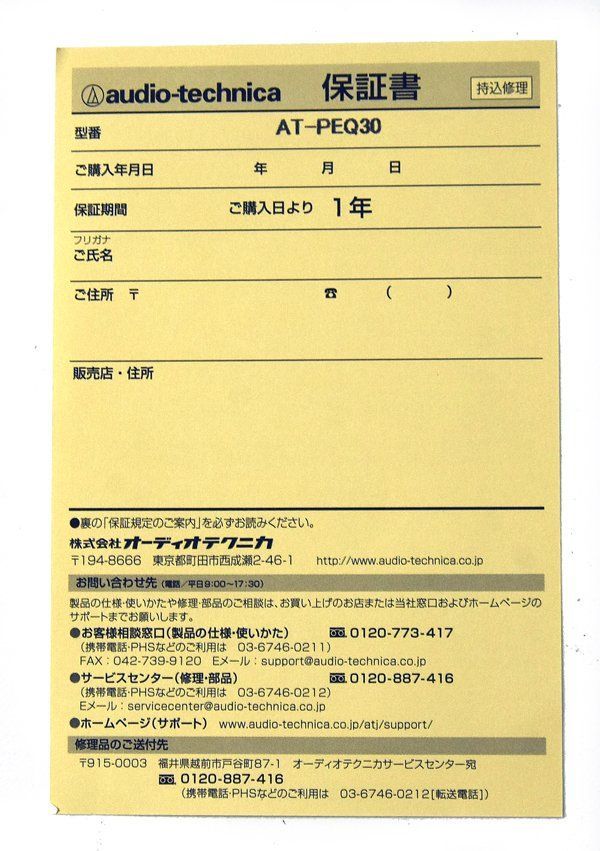 audio-technica 保証書 持込修理
型番 AT-PEQ30
ご購入年月日 年 月 日
保証期間 ご購入日より 1年
フリガナ
ご氏名
ご住所 〒 ☎ ( )
販売店・住所
●裏の「保証規定のご案内」を必ずお読みください。
株式会社オーディオテクニカ
〒194-8666 東京都町田市西成瀬2-46-1 http://www.audio-technica.co.jp
お問い合わせ先(電話/平日9:00~17:30)
製品の仕様・使いかたや修理・部品のご相談は、お買い上げのお店または当社窓口およびホームページの
サポートまでお願いします。
●お客様相談窓口(製品の仕様・使いかた) 0120-773-417
(携帯電話・PHSなどのご利用は 03-6746-0211)
FAX:042-739-9120 Eメール:support@audio-technica.co.jp
●サービスセンター(修理・部品) 0120-887-416
(携帯電話・PHSなどのご利用は 03-6746-0212)
Eメール:servicecenter@audio-technica.co.jp
●ホームページ(サポート) www.audio-technica.co.jp/atj/support/
修理品のご送付先
〒915-0003 福井県越前市戸谷町87-1 オーディオテクニカサービスセンター宛
0120-887-416
(携帯電話・PHSなどのご利用は 03-6746-0212[転送電話])